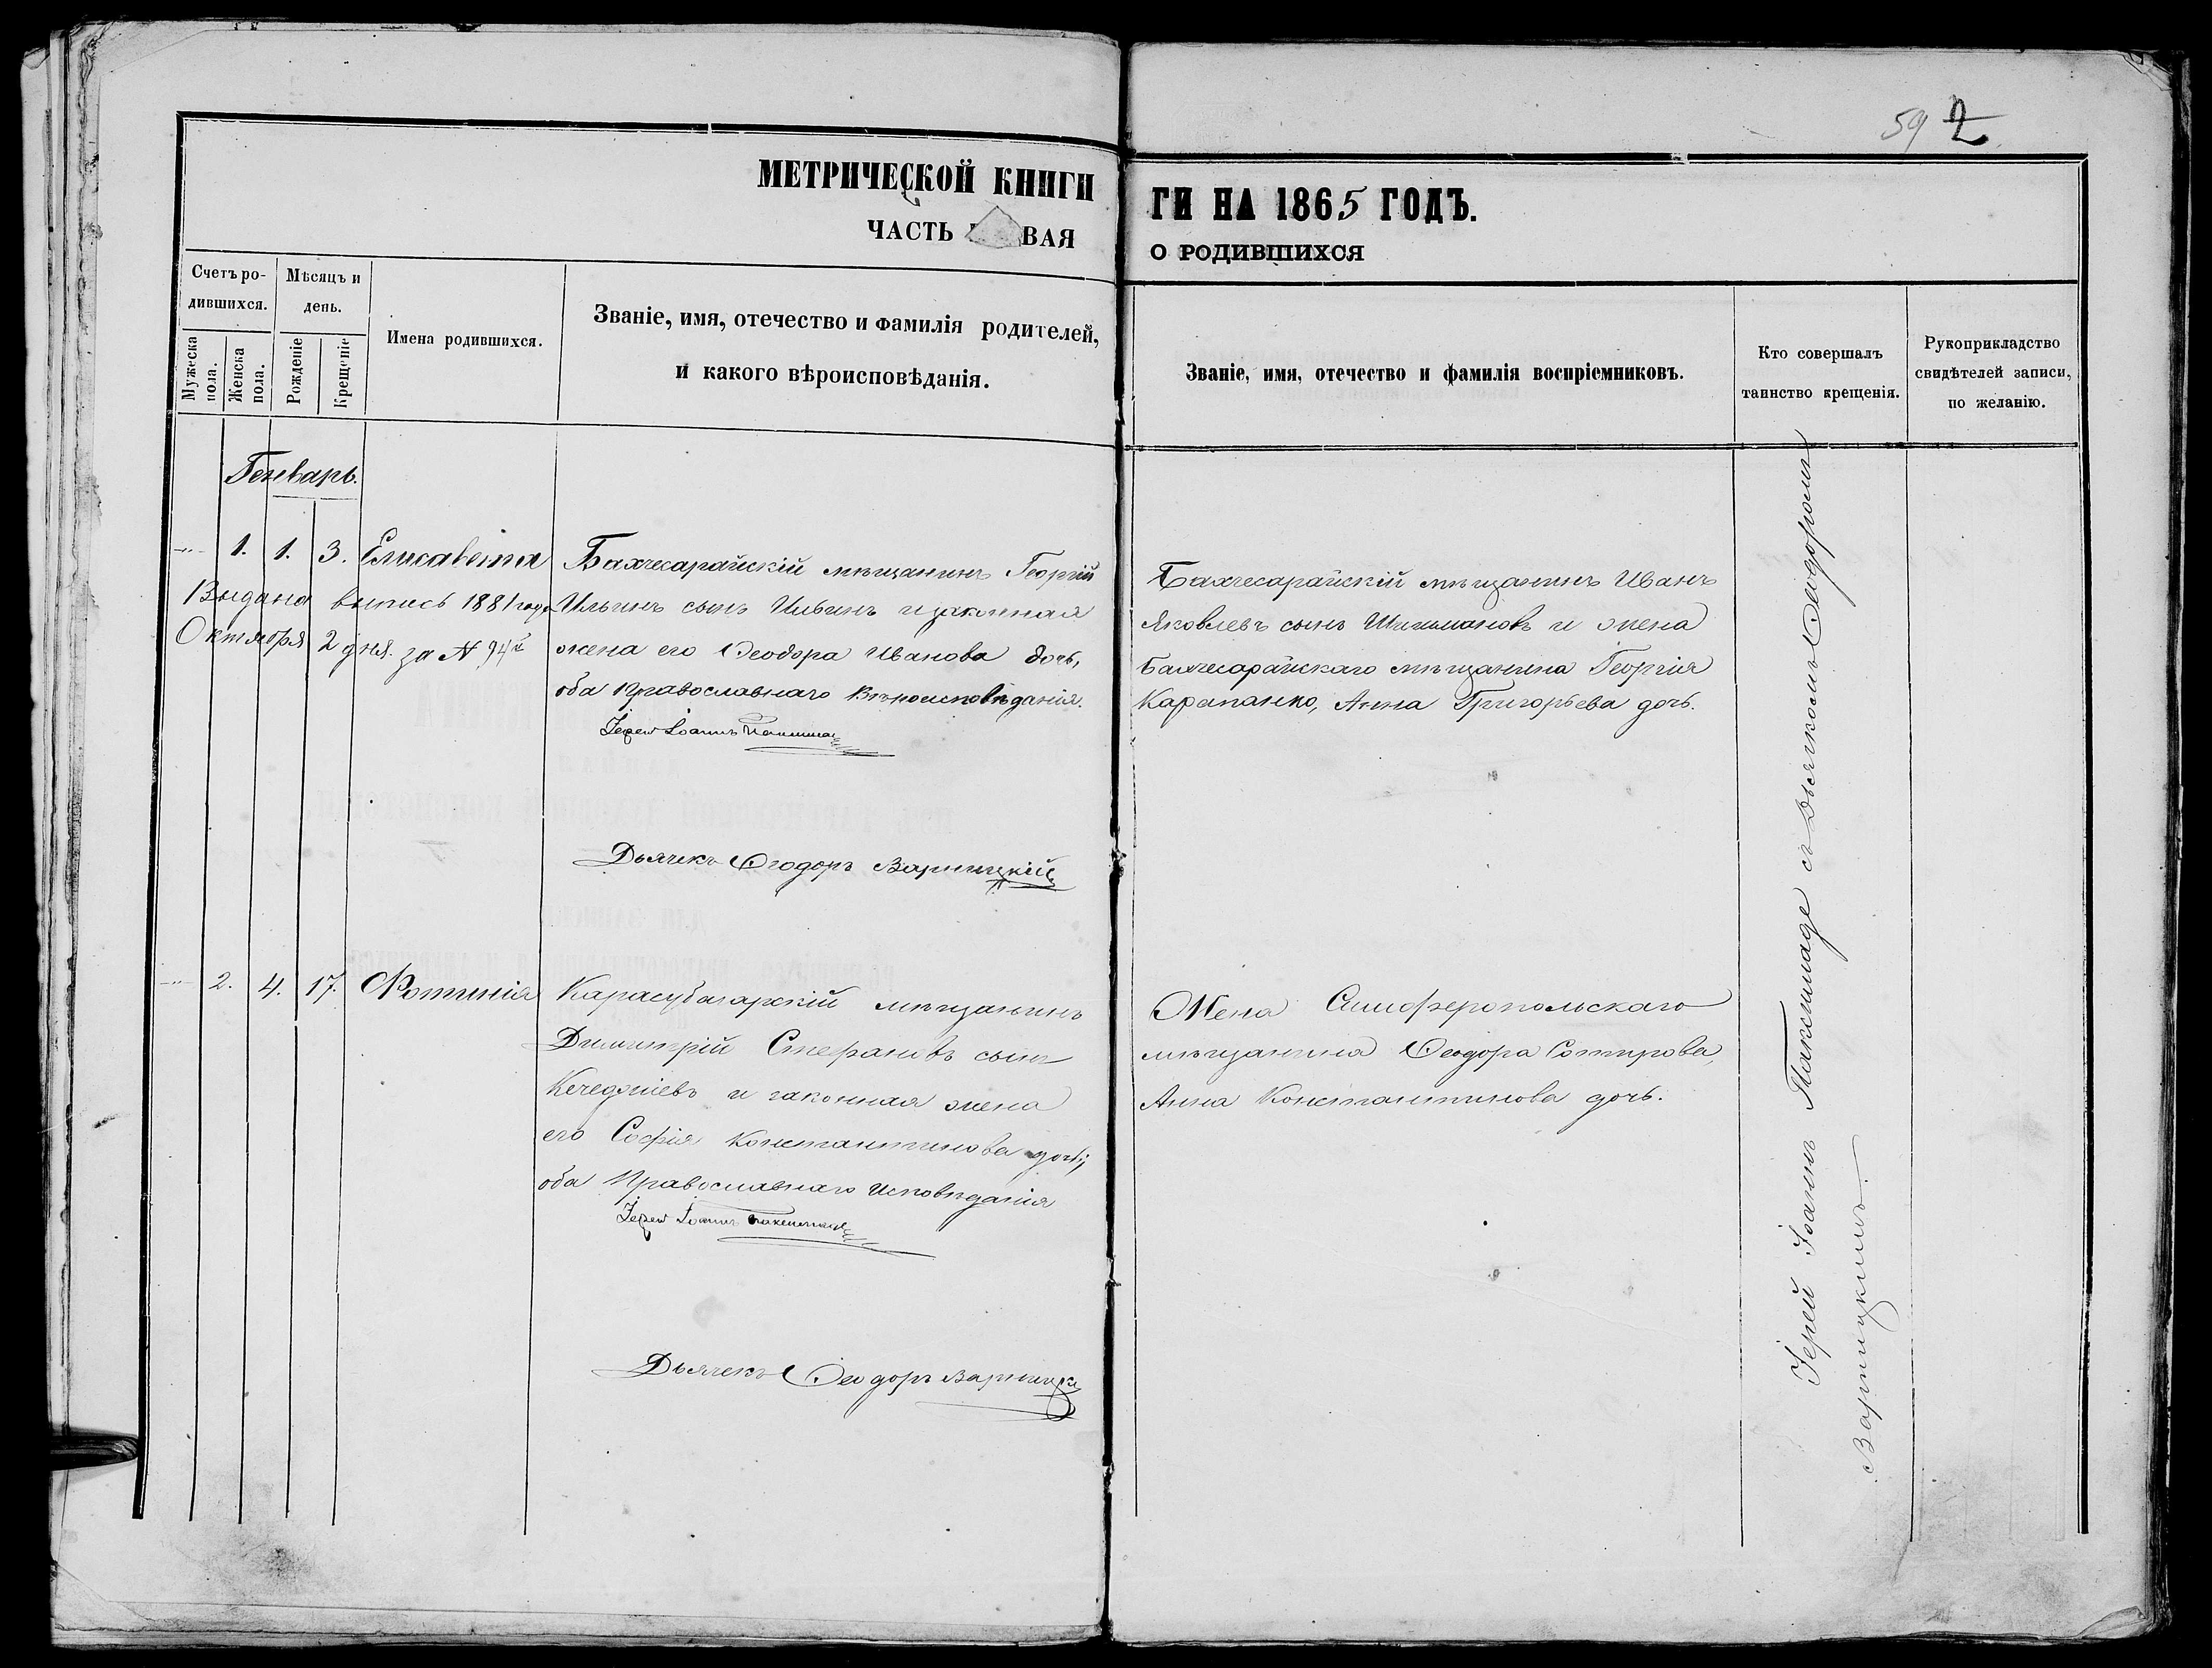 59 2
МЕТРИЧЕСКОЙ КНИГИ
ГИ НА 1865 ГОДЪ.
ЧАСТЬ ВАЯ
О РОДИВШИХСЯ
Счетъ ро-
дившихся.
Мужеска
пола.
Женска
пола.
Мѣсяцъ и
день.
Рожденіе
Крещеніе
Имена родившихся.
Званіе, имя, отечество и фамилія родителей,
и какого вѣроисповѣданія.
Званіе, имя, отечество и фамилія воспріемниковъ.
Кто совершалъ
таинство крещенія.
Рукоприкладство
свидѣтелей записи,
по желанію.
Генварь.
1. 1. 3. Елисавета
Выдана выпись 1881 года
Октября 2 дня за N 94
Бахчесарайскій мѣщанинъ Георгій
Ильинъ сынъ Ильинъ и законная
жена его Ѳеодора Иванова дочь,
оба Православнаго Вѣроисповѣданія.
Іерей Іоаннъ
Дьячекъ Ѳеодоръ Варницкій
Бахчесарайскій мѣщанинъ Иванъ
Яковлевъ сынъ Шишмановъ и жена
Бахчесарайскаго мѣщанина Георгія
Карапанко, Анна Григорьева дочь.
2. 4. 17. Фотинія
Карасубазарскій мѣщанинъ
Димитрій Стефановъ сынъ
Кечеджіевъ и законная жена
его Софія Константинова дочь;
оба Православнаго Исповѣданія
Іерей Іоаннъ
Дьячекъ Ѳеодоръ Варницкі
Жена Симферопольскаго
мѣщанина Ѳеодора Сотирова,
Анна Константинова дочь.
Іерей Іоаннъ Паксимаде съ Дьячкомъ Ѳеодоромъ
Варницкимъ.